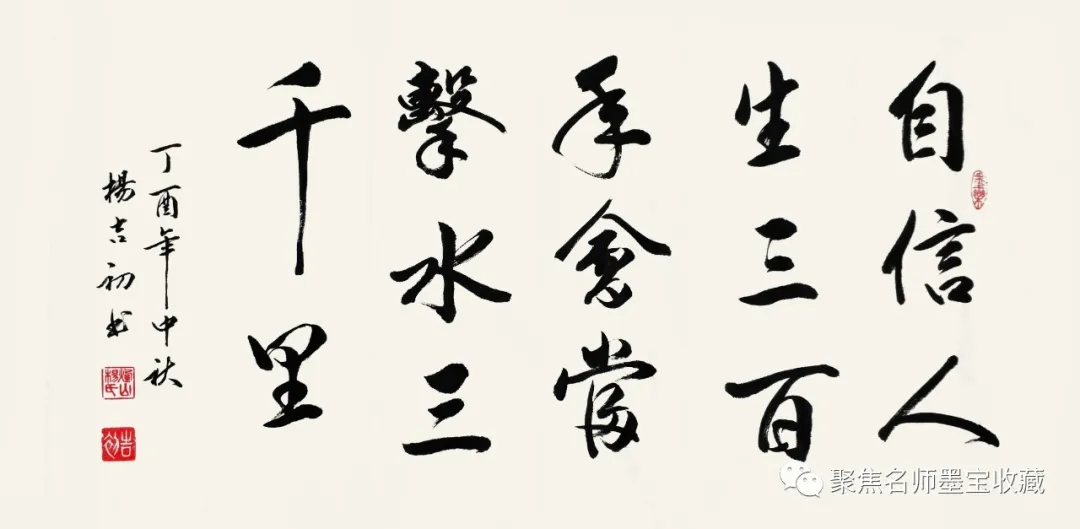 自信人
生三百
年會當
擊水三
千里
丁酉年中秋
楊吉初书
吉初
聚焦名师墨宝收藏